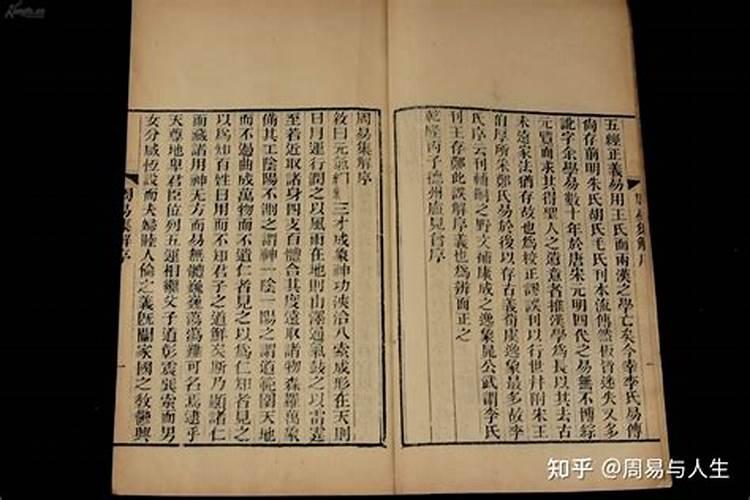 五經正義易用王氏而兩漢之學亡矣今幸李氏易傳
尚存前明朱氏胡氏毛氏刊本流傳然板皆迷失又多
訛字余學易數十年於唐宋元明四代之易無不博綜
元覽而求其得聖人之遺意者推漢學為長以其去古
未遠家法猶存故也為校正謬誤刊以行世幷附朱王
伯厚所采鄭氏易於後以存古義荀虞逸象最多故李
氏序云刊輔嗣之野文補康成之逸象晁公武謂李氏
刊王存鄭此誤解序義也爲辨而正之
乾隆丙子德州盧見曾序
周易集解序
敘曰元氣絪縕三才成象神功浹洽八索成形在天則
日月運行潤之以風雨在地則山澤通氣鼓之以雷霆
至若近取諸身四支百體合其度遠取諸物森羅萬象
備其工陰陽不測之謂神一陰一陽之謂道範圍天地
而不過曲成萬物而不遺仁者見之以為仁知者見之
以為知百姓日用而不知君子之道鮮矣斯乃顯諸仁
而藏諸用神无方而易無體巍巍蕩蕩難可名焉逮乎
天尊地卑君臣位列五運相繼父子道彰震巽索而男
女分咸恆設而夫婦睦人倫之義旣闡家國之敎鬱興
周易集解序
知乎 @周易与人生